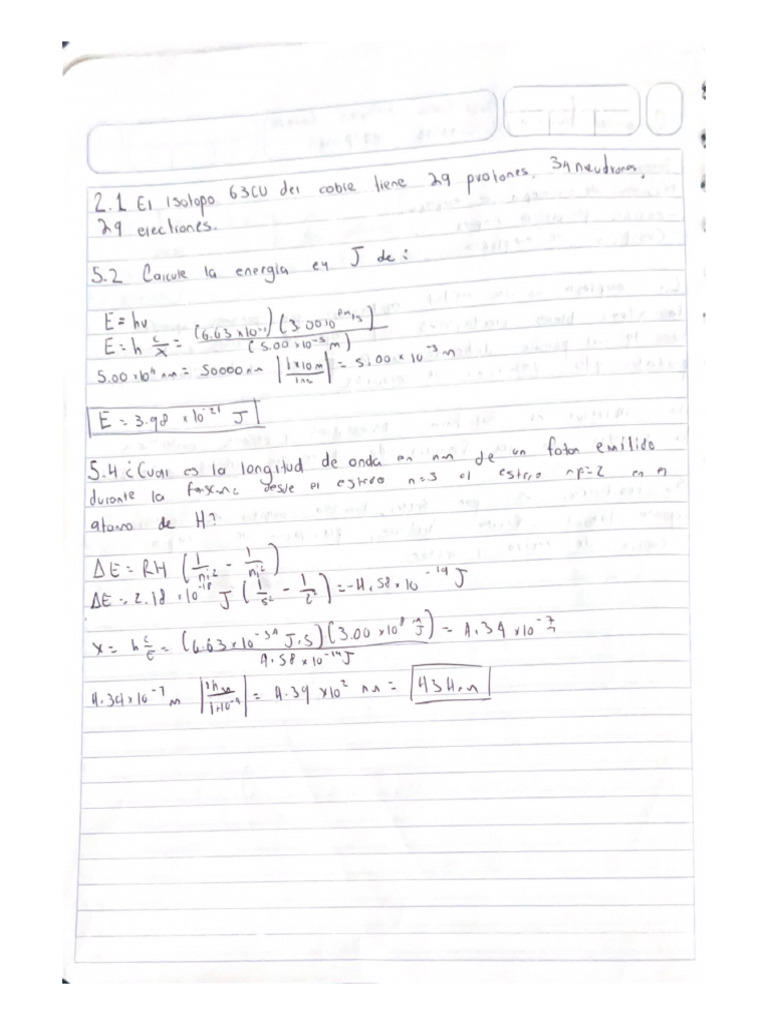 2.1 El Isotopo 63CU del cobre tiene 29 protones. 34 neutrones.
29 electrones.
5.2 Calcule la energía en J de:
E = hν
E = h c/λ = (6.63 x10 ) (3.00x10⁸ m/s) / (5.00 x 10⁻⁵ m)
5.00 x 10⁴ nm = 50000 nm |1x10 m / 1 | = 5.00 x 10⁻³ m
E = 3.98 x 10⁻²¹ J
5.4 ¿Cual es la longitud de onda en nm de un foton emitido
durante la desde el estado n=3 al estado np=2 en el
atomo de H?
ΔE = RH (1/ni² - 1/ni²)
ΔE = 2.18 x 10⁻¹⁸ J (1/5² - 1/2²) = -4.58 x 10⁻¹⁹ J
λ = h c/E = (6.63 x 10⁻³⁴ J.S) (3.00 x 10⁸ ) / 4.58 x 10⁻¹⁹ J = 4.34 x10⁻⁷
4.34 x 10⁻⁷ m |1nm / 1x10⁻⁹| = 4.34 x10² nm = 434nm